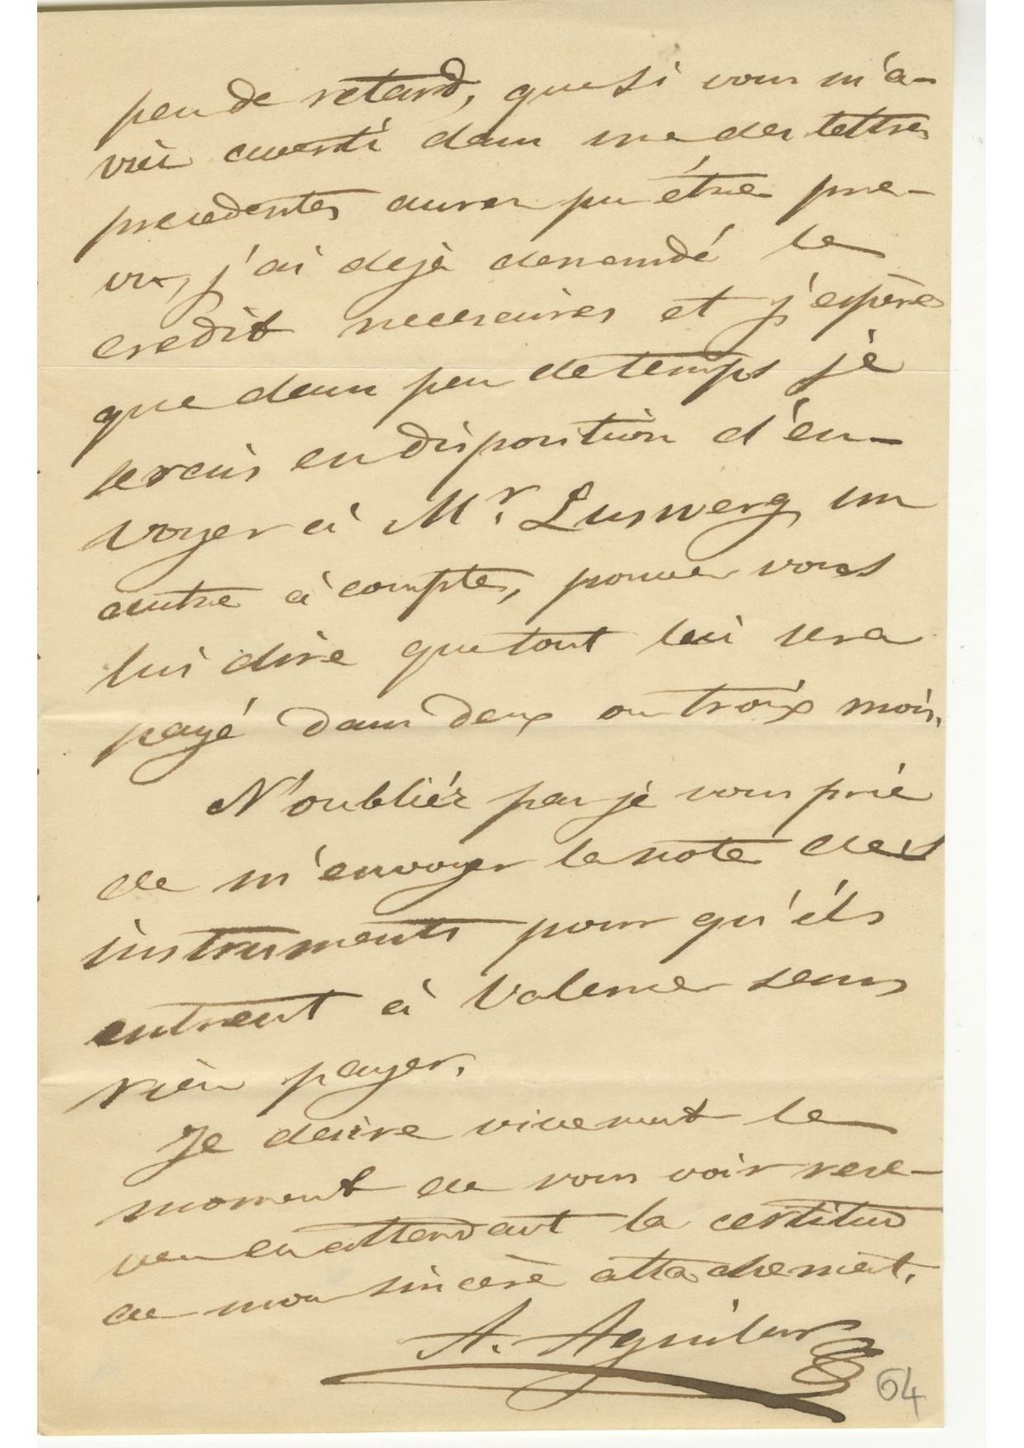 peu de retard, que si vous m'a-
viéz averti dans une des lettres
precedentes auran pu étre pre-
vu, j'ai dejà demandé le
credit necesaires et j'espère
que dans peu de temps je
serais en disposition d'en-
voyer à Mr. Luswerg un
autre à compte, pouver vous
lui dire que tout lui sera
payé dans deux ou troix mois.
N'oubliéz pas je vous prie
de m'envoyer la note des
instruments pour qu'ils
entrent à Valence sans
rièn payer.
Je desire vivement le
moment de vous voir
en attendant la certitud
de mon sincère attachement.
A. Aguilar
64